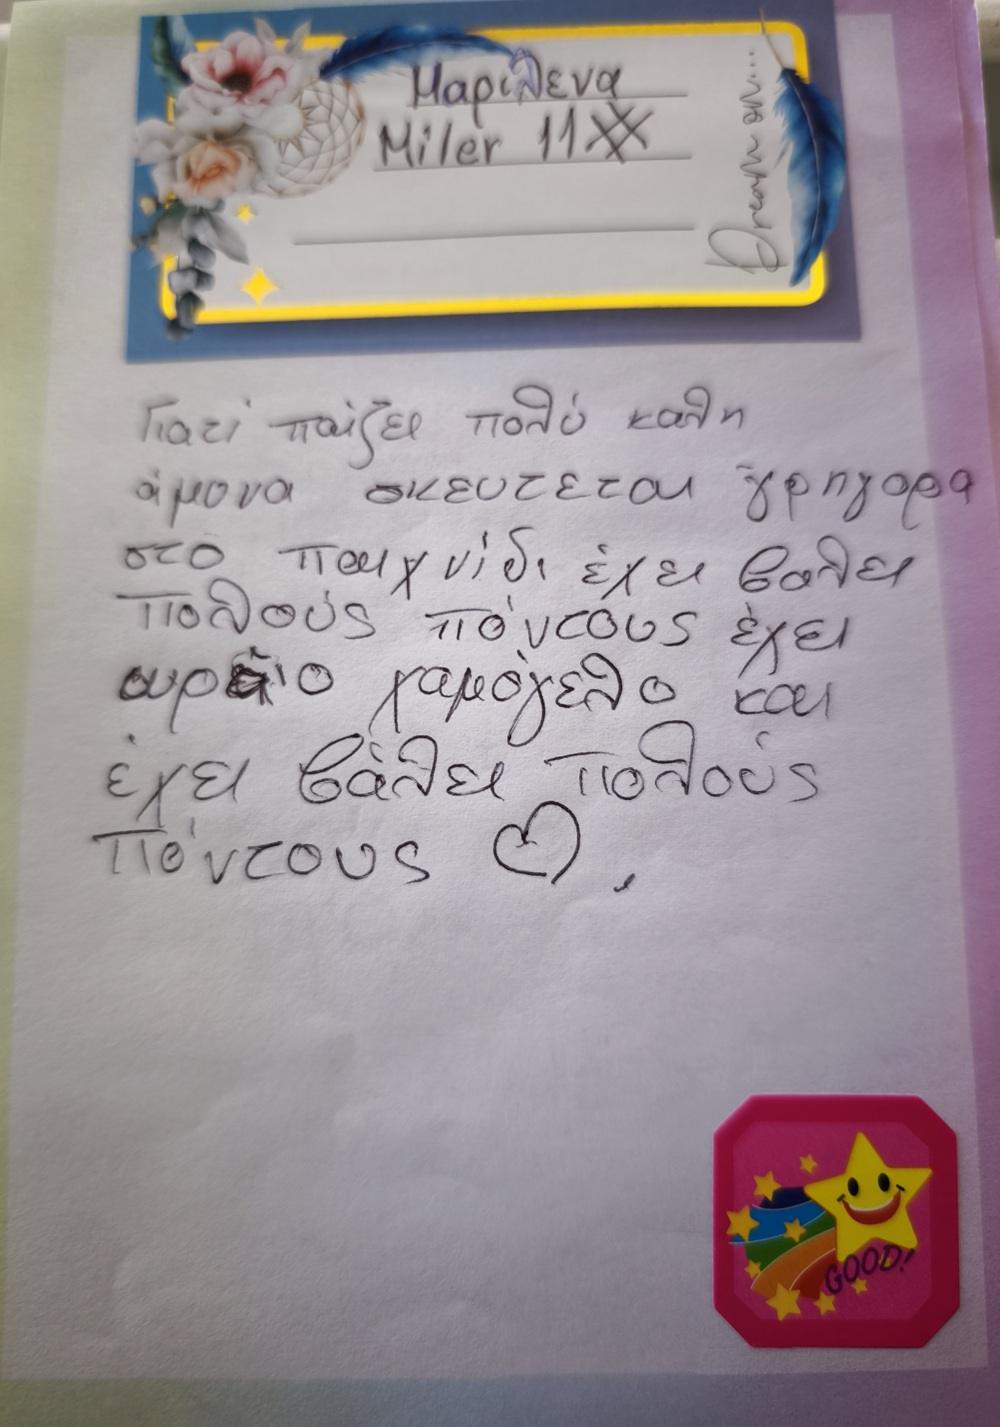 Μαριλενα
Miler 11
Dream on...
Γιατί παίζει πολύ καλη
άμονα σκευτεται γρηγορα
στο παιχνίδι έχει βαλει
πολούς πόντους έχει
ουραίο χαμόγελο και
έχει βάλει πολούς
πόντους
GOOD!